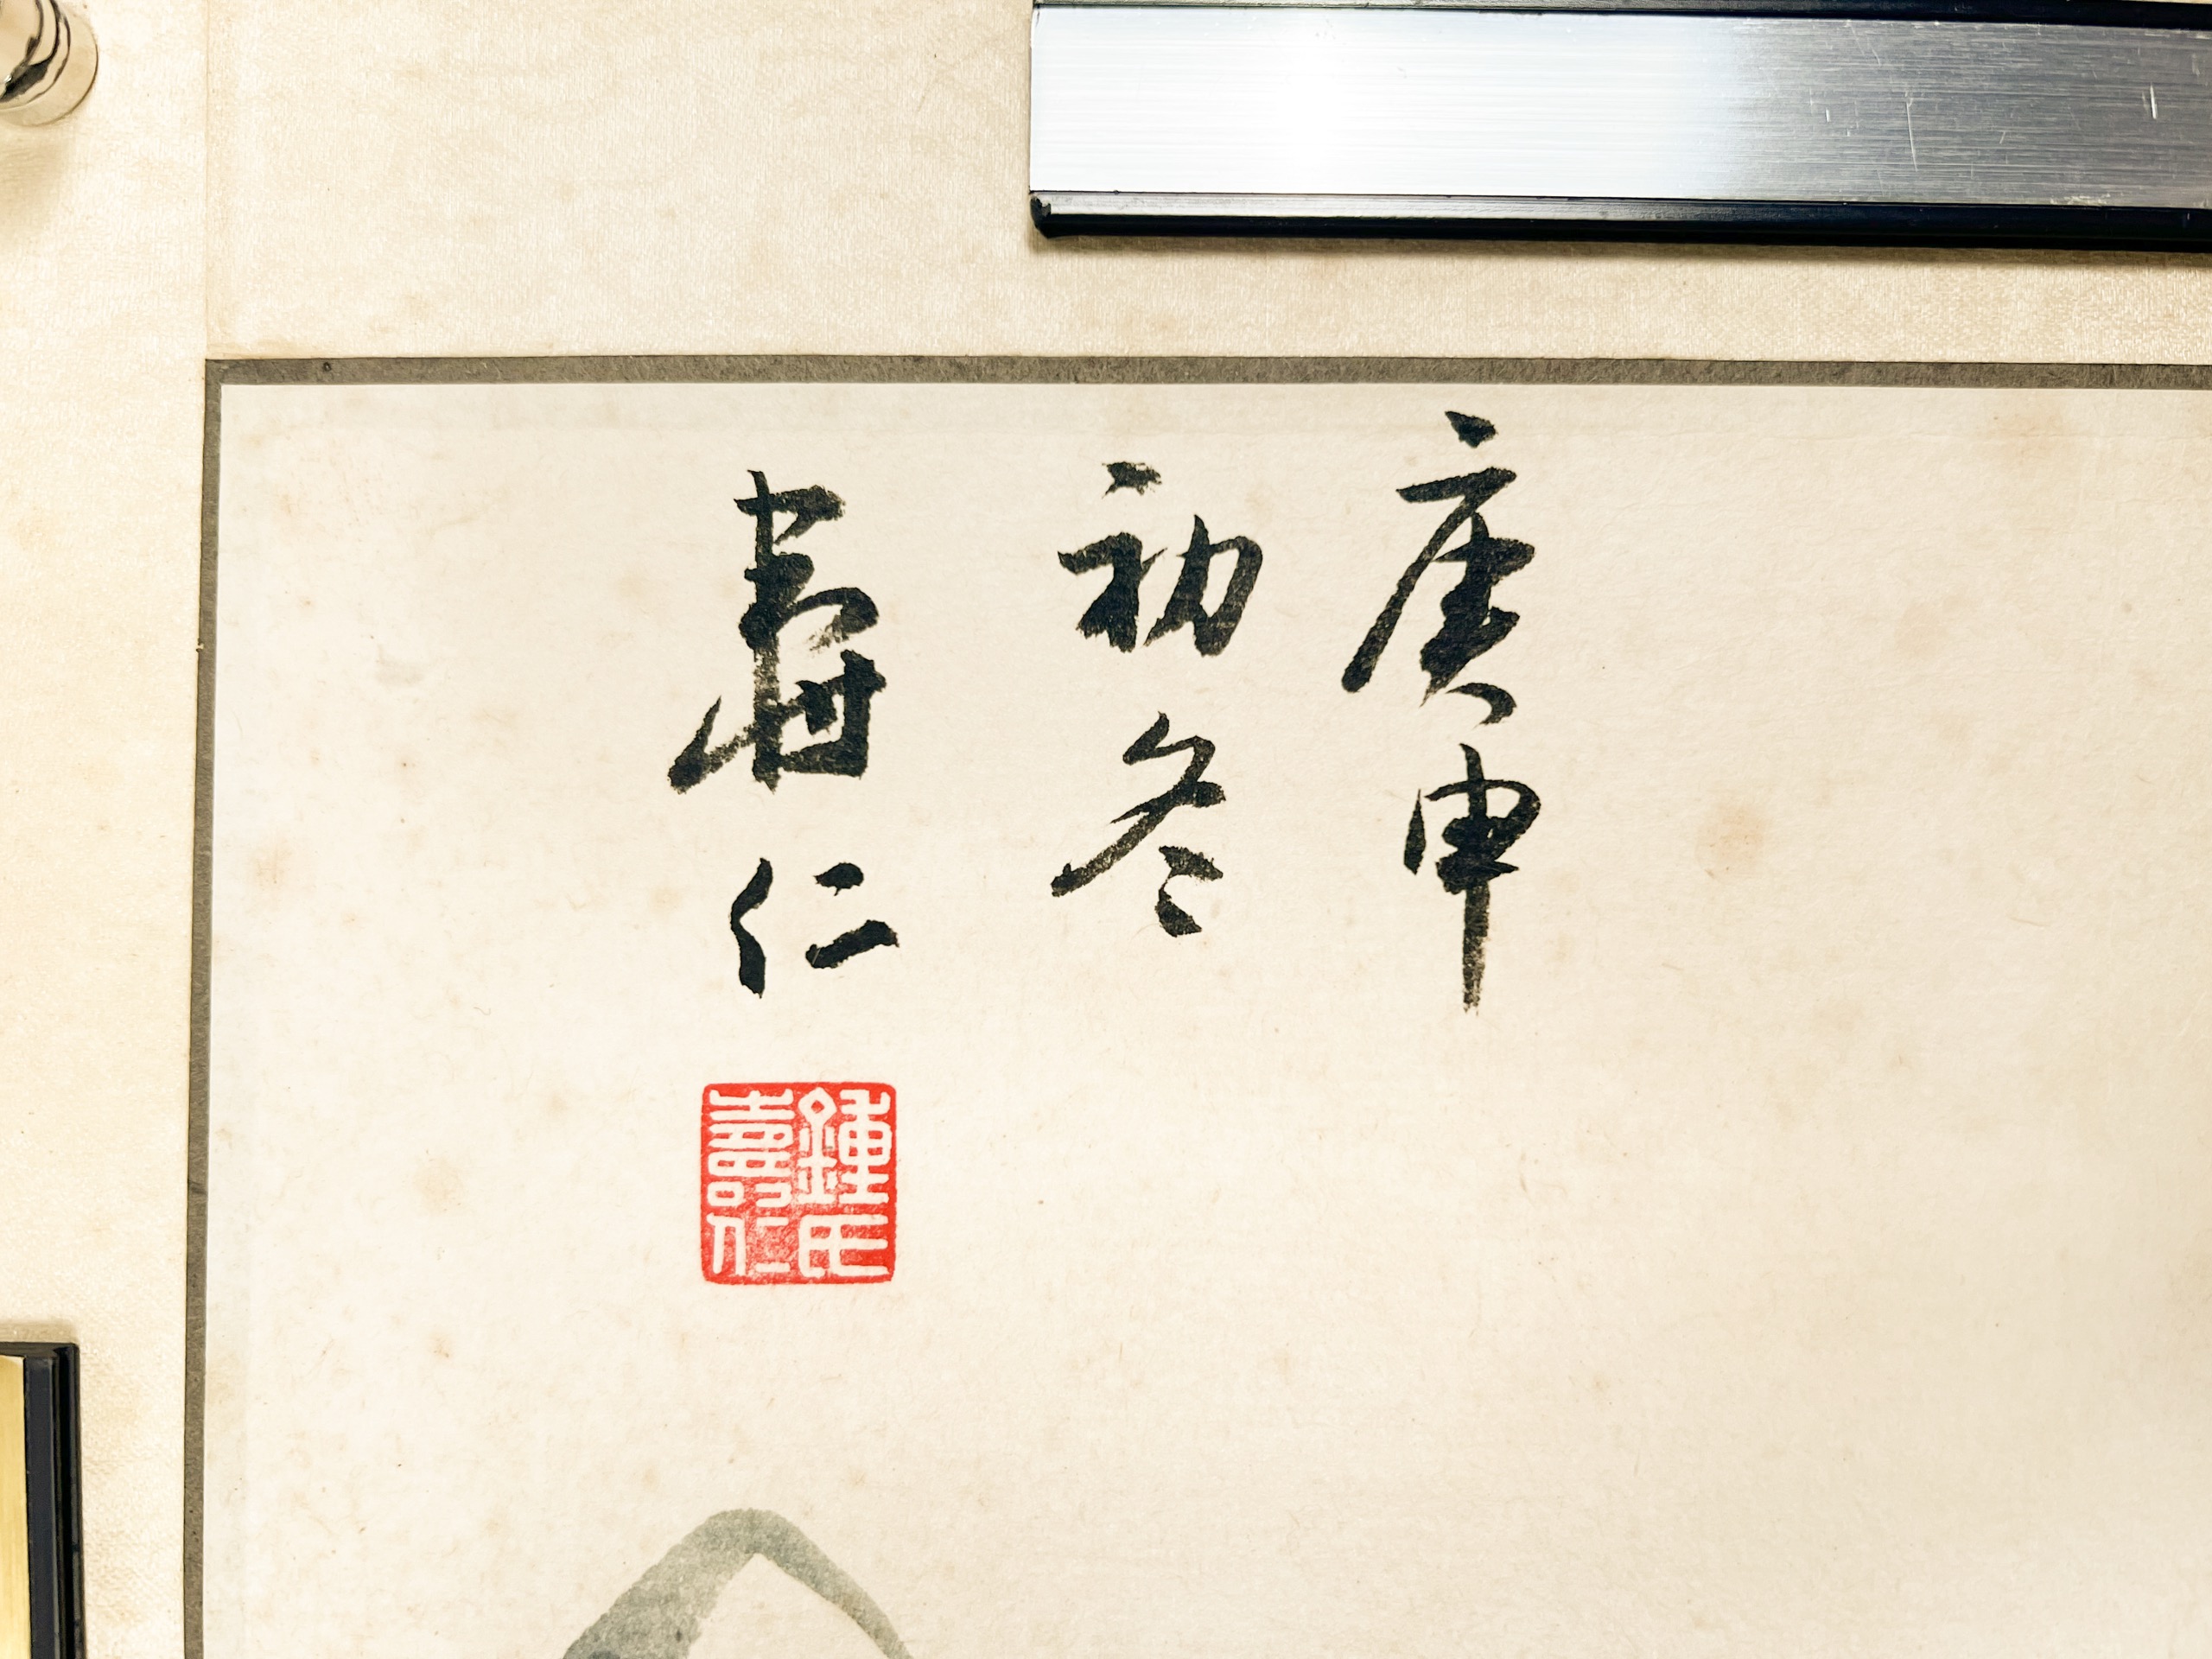 庚申
初冬
壽仁
鍾氏
壽仁